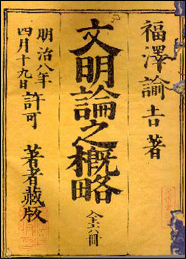 福澤諭吉著
文明論之概略 全六冊
明治八年
四月十九日許可
著者蔵版